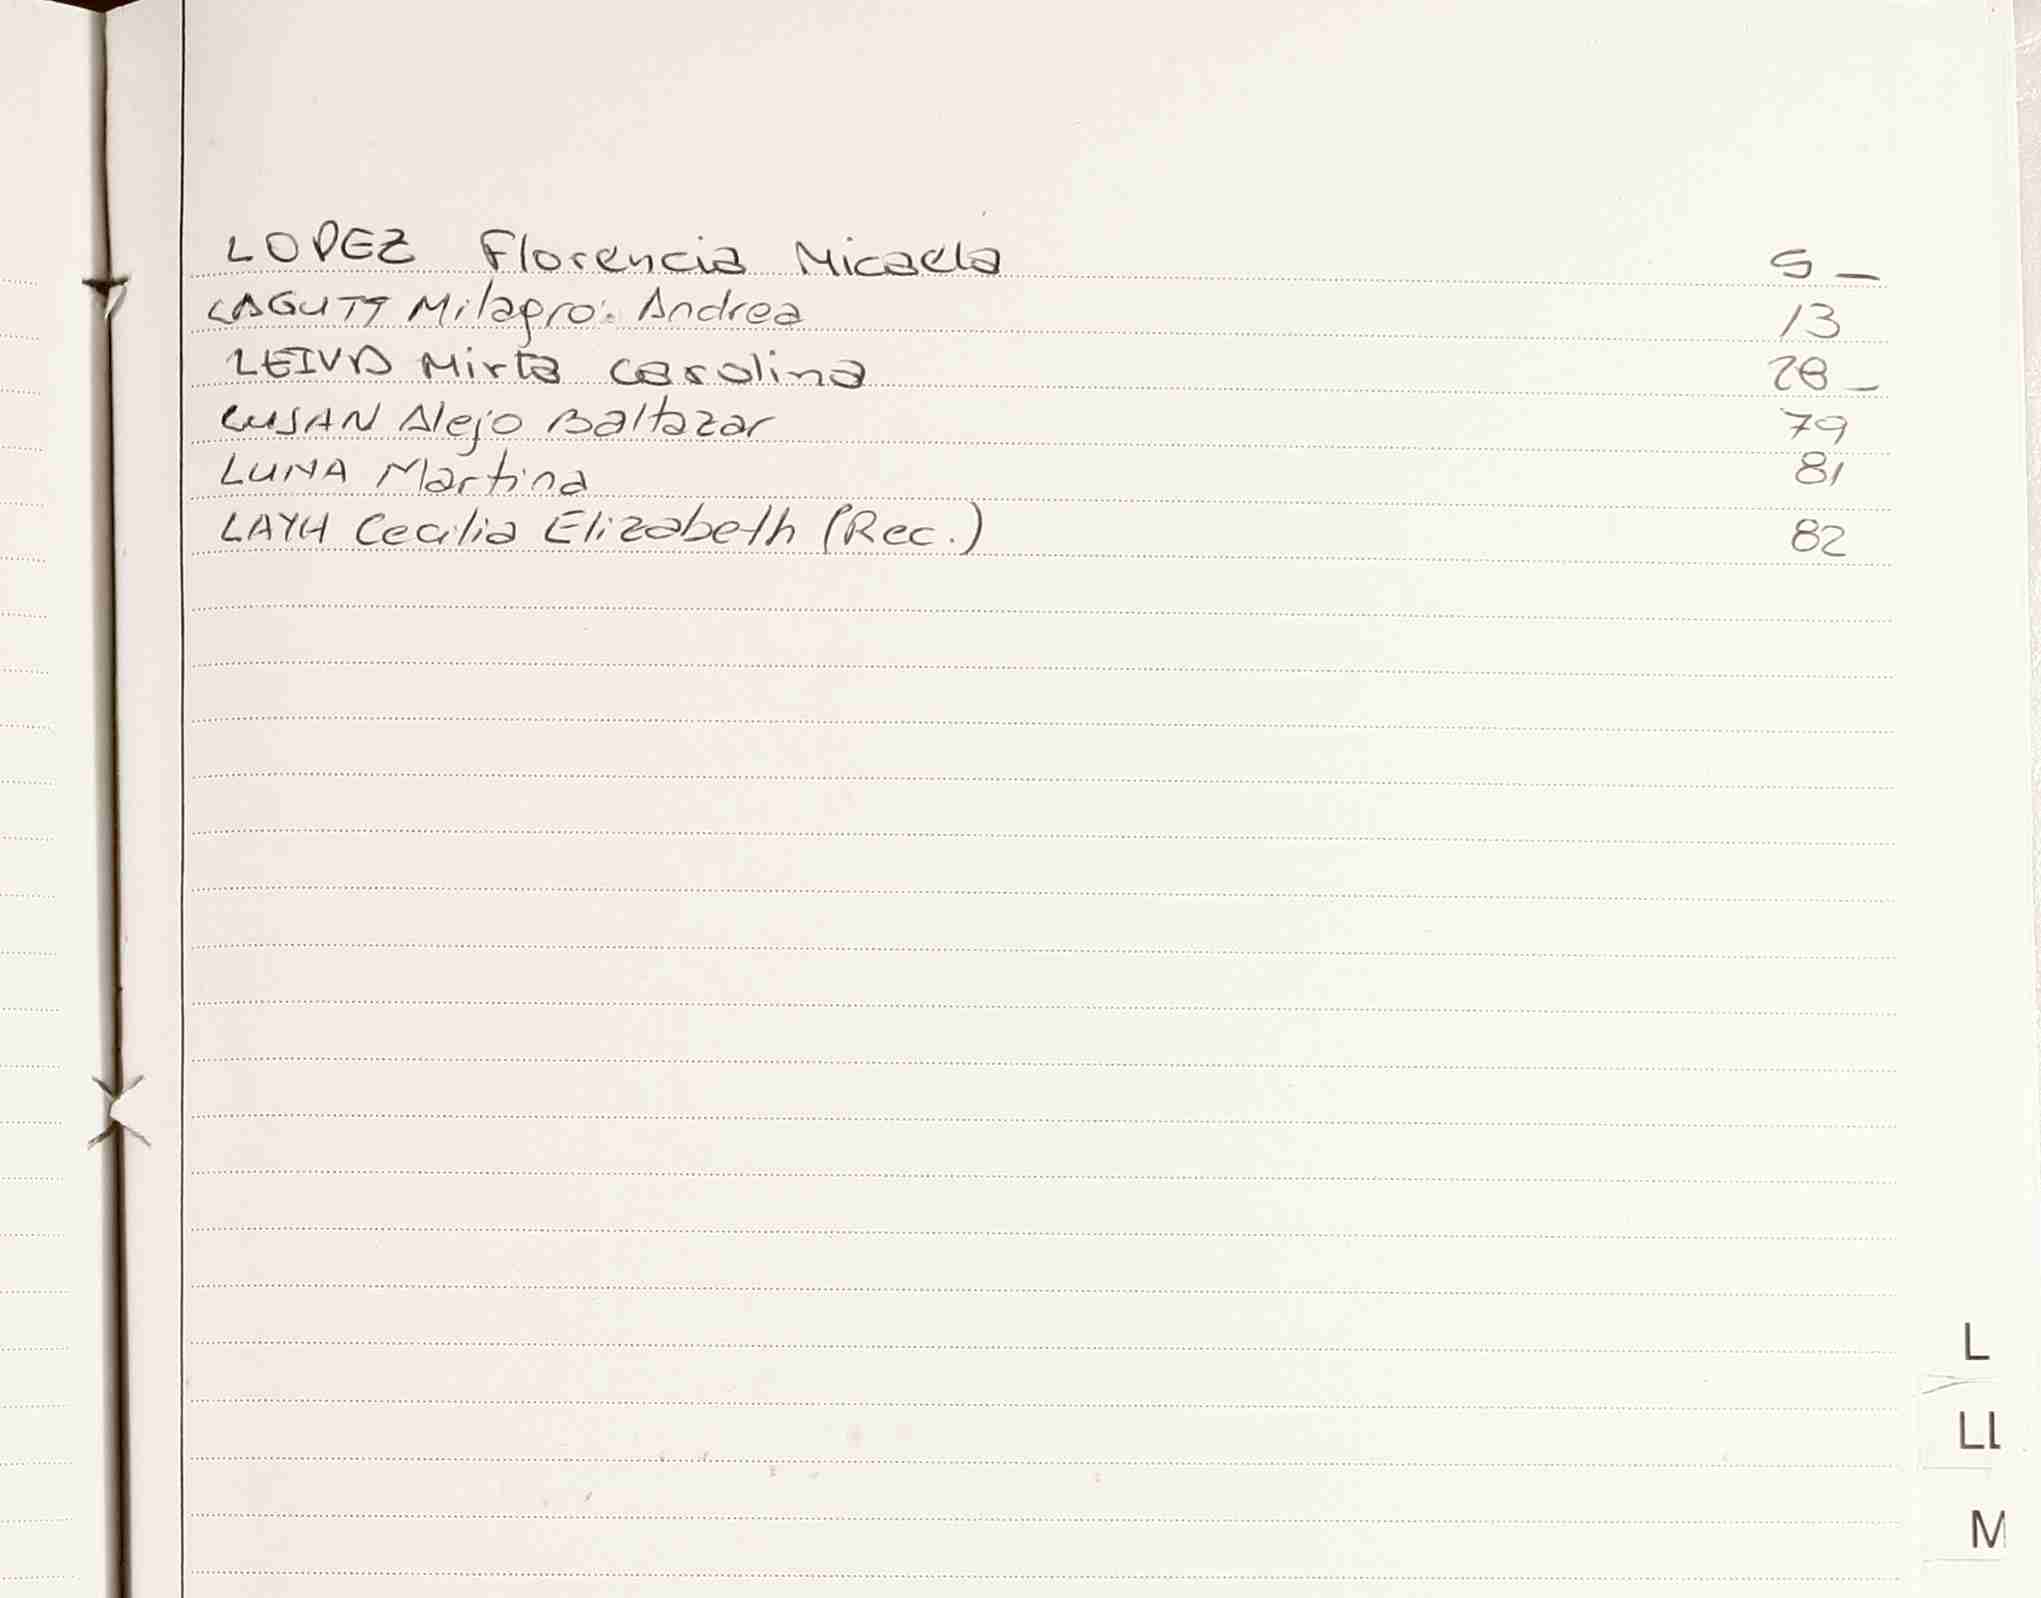 LOPEZ Florencia Micaela 5 _
Milagro: Andrea 13
LEIVA Mirta Carolina 28 _
LUSAN Alejo Baltazar 79
LUNA Martina 81
LAYH Cecilia Elizabeth (Rec.) 82
L
LL
M